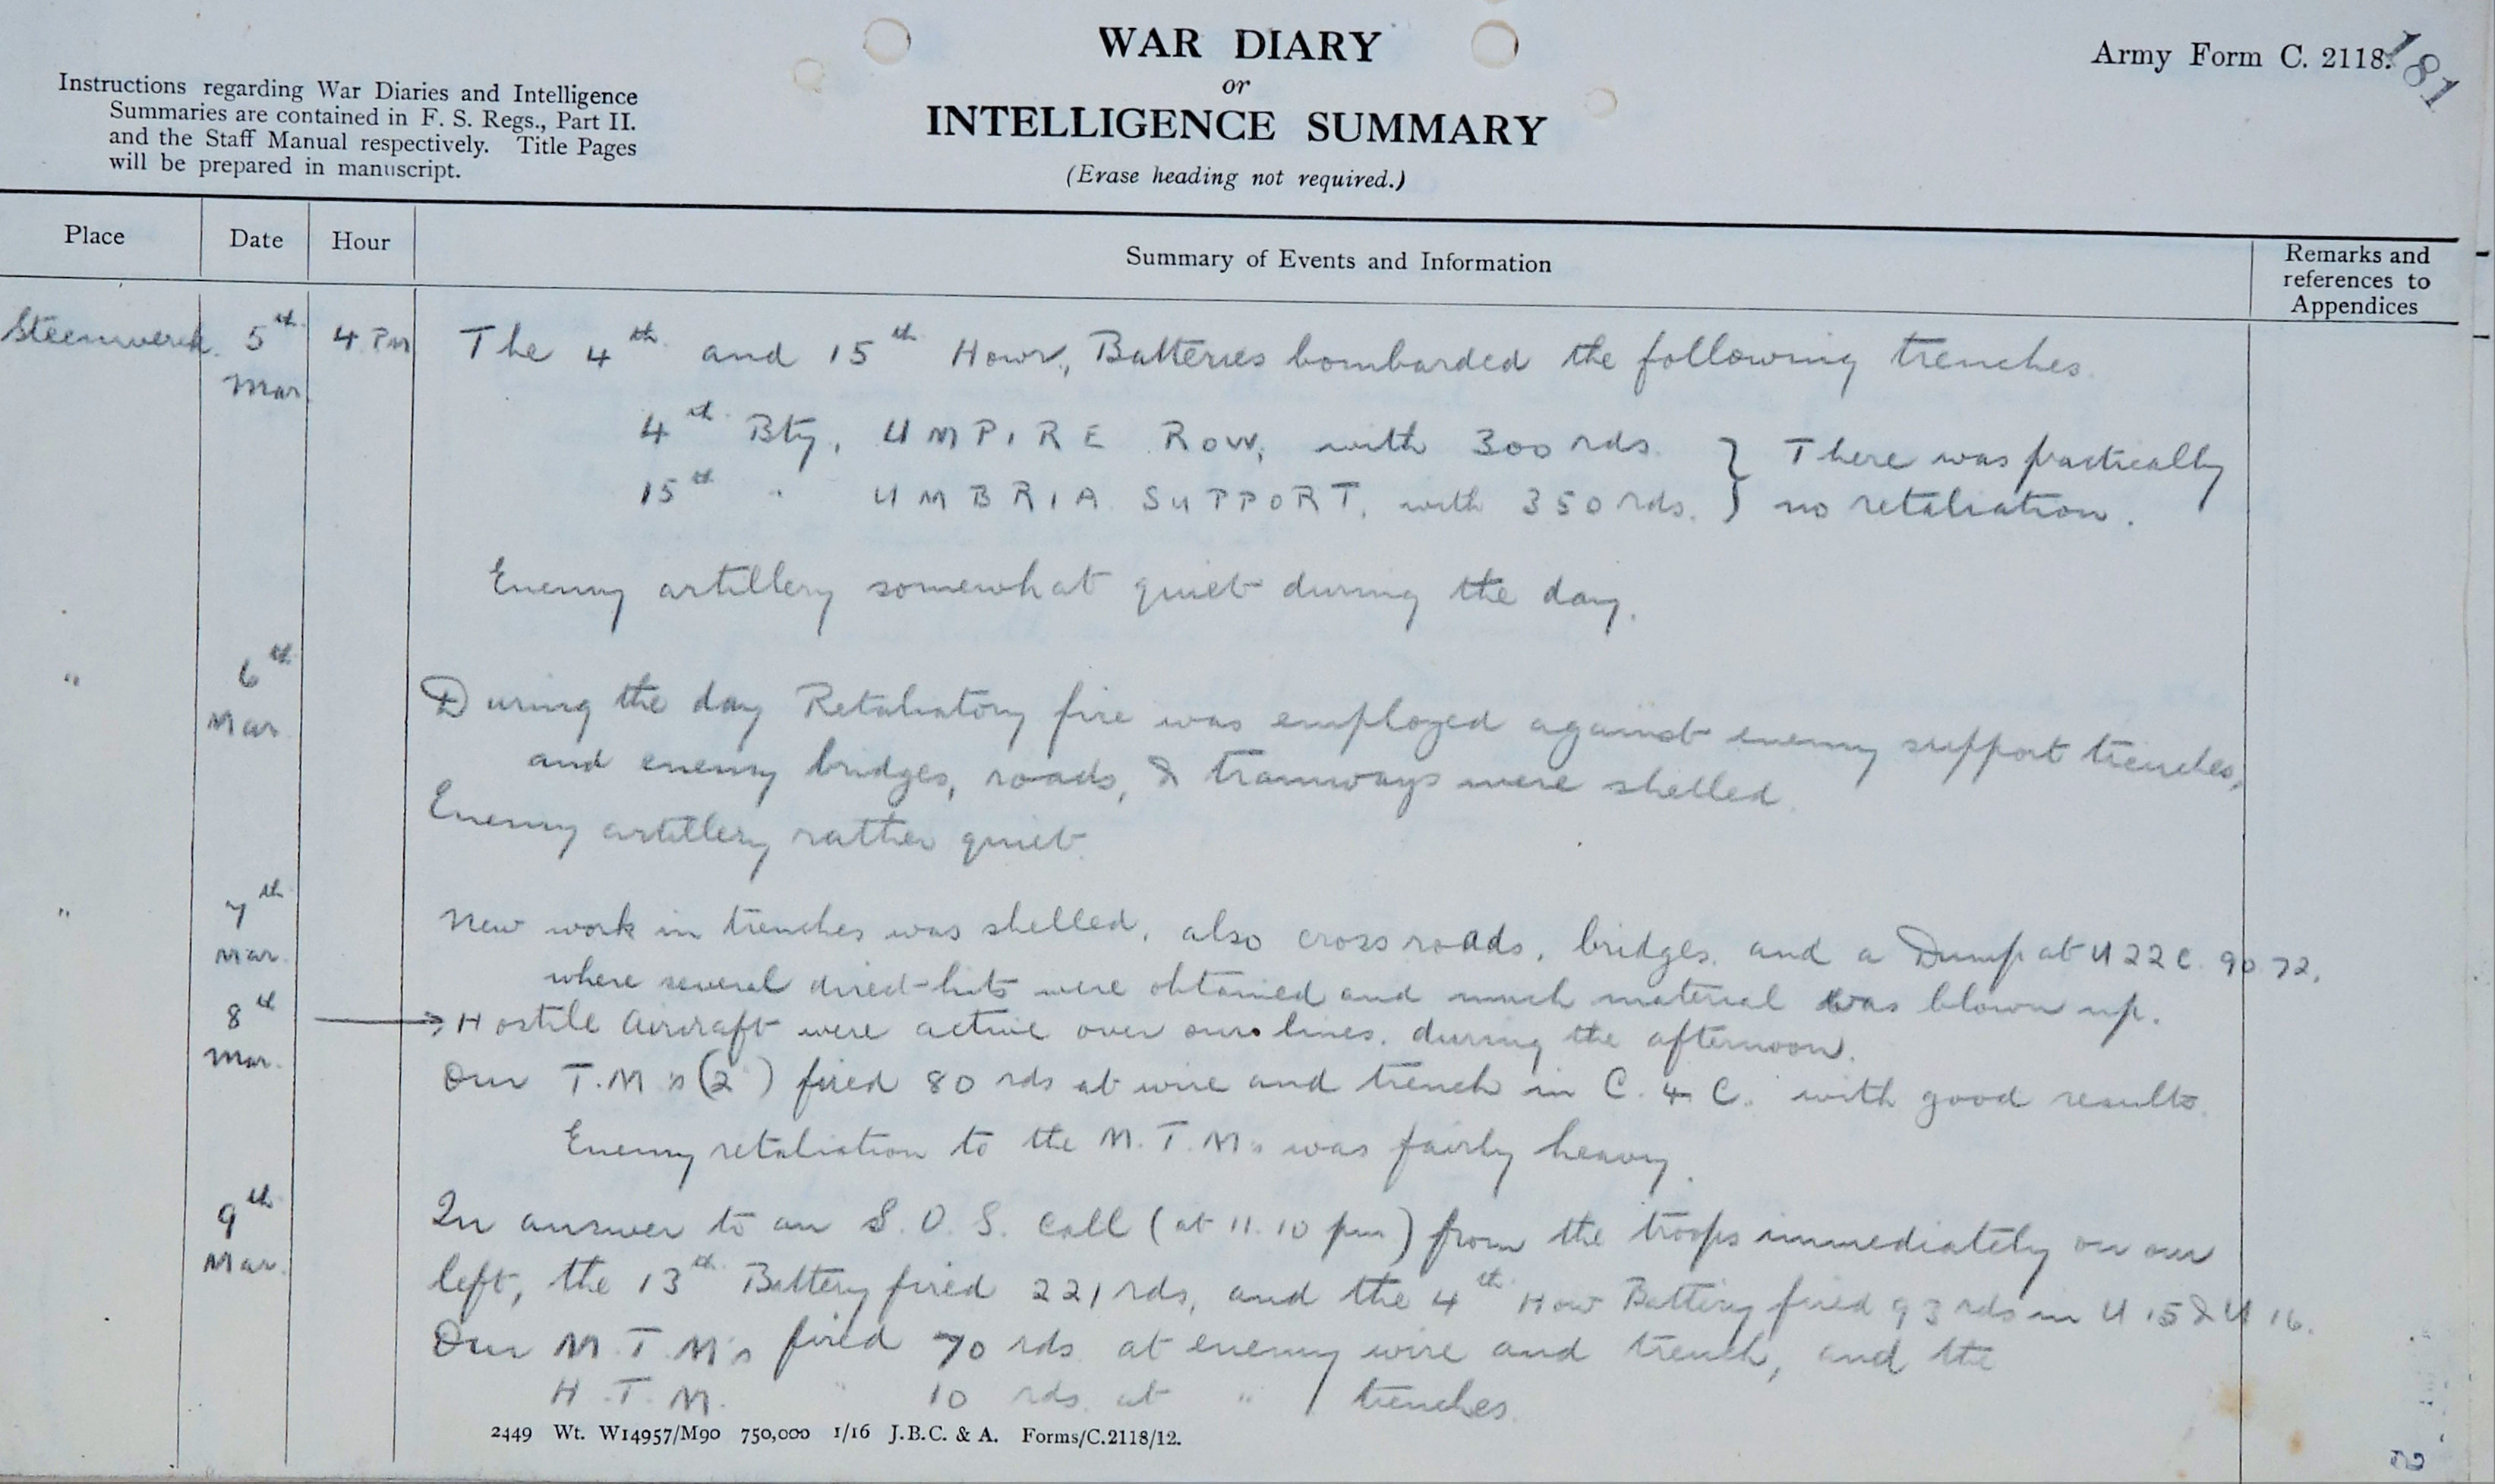 WAR DIARY
or
INTELLIGENCE SUMMARY
(Erase heading not required.)
Army Form C. 2118.
181
Instructions regarding War Diaries and Intelligence
Summaries are contained in F. S. Regs., Part II.
and the Staff Manual respectively. Title Pages
will be prepared in manuscript.
Place Date Hour Summary of Events and Information Remarks and references to Appendices
Steenwerck. 5th Mar 4 PM The 4th and 15th Howr, Batteries bombarded the following trenches.
4th Bty, UMPIRE ROW, with 300 rds. } There was practically
15th " UMBRIA SUPPORT, with 350 rds. } no retaliation.
Enemy artillery somewhat quiet during the day.
" 6th Mar During the day Retaliatory fire was employed against enemy support trenches,
and enemy bridges, roads, & tramways were shelled.
Enemy artillery rather quiet.
" 7th Mar. New work in trenches was shelled, also cross roads, bridges, and a Dump at U 22 C. 90 72,
where several direct-hits were obtained and much material was blown up.
8th Mar. → Hostile Aircraft were active over our lines. during the afternoon.
Our T.M's (2") fired 80 rds at wire and trench in C. 4. C. with good results.
Enemy retaliation to the M.T.M's was fairly heavy.
9th Mar. In answer to an S.O.S. call (at 11.10 pm) from the troops immediately on our
left, the 13th Battery fired 221 rds, and the 4th How Battery fired 93 rds in U 15 & U 16.
Our M.T.M's fired 70 rds. at enemy wire and trench, and the
H.T.M. " 10 rds. at " trenches.
2449 Wt. W14957/M90 750,000 1/16 J.B.C. & A. Forms/C.2118/12.